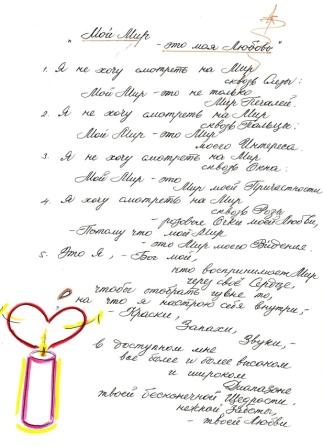 "Мой Мир
- это моя Любовь"
1. Я не хочу смотреть на Мир
сквозь Слёзы:
Мой Мир - это не только
Мир Печалей.
2. Я не хочу смотреть на Мир
сквозь Пальцы:
Мой Мир - это Мир
моего Интереса.
3. Я не хочу смотреть на Мир
сквозь Окна:
Мой Мир - это
Мир моей Причастности.
4. Я хочу смотреть на Мир
сквозь Розы
- розовые Очки моей Любви,
- Потому что мой Мир
- это Мир моего Видения.
5. Это Я, - Бог мой,
что воспринимает Мир
через своё Сердце,
чтобы отобрать
на что я настрою себя внутри,-
- Краски,
Запахи,
Звуки,-
в доступном мне
всё более и более высоком
и широком
Диапазоне
твоей бесконечной Щедрости,
нежной Заботы,
- твоей Любви